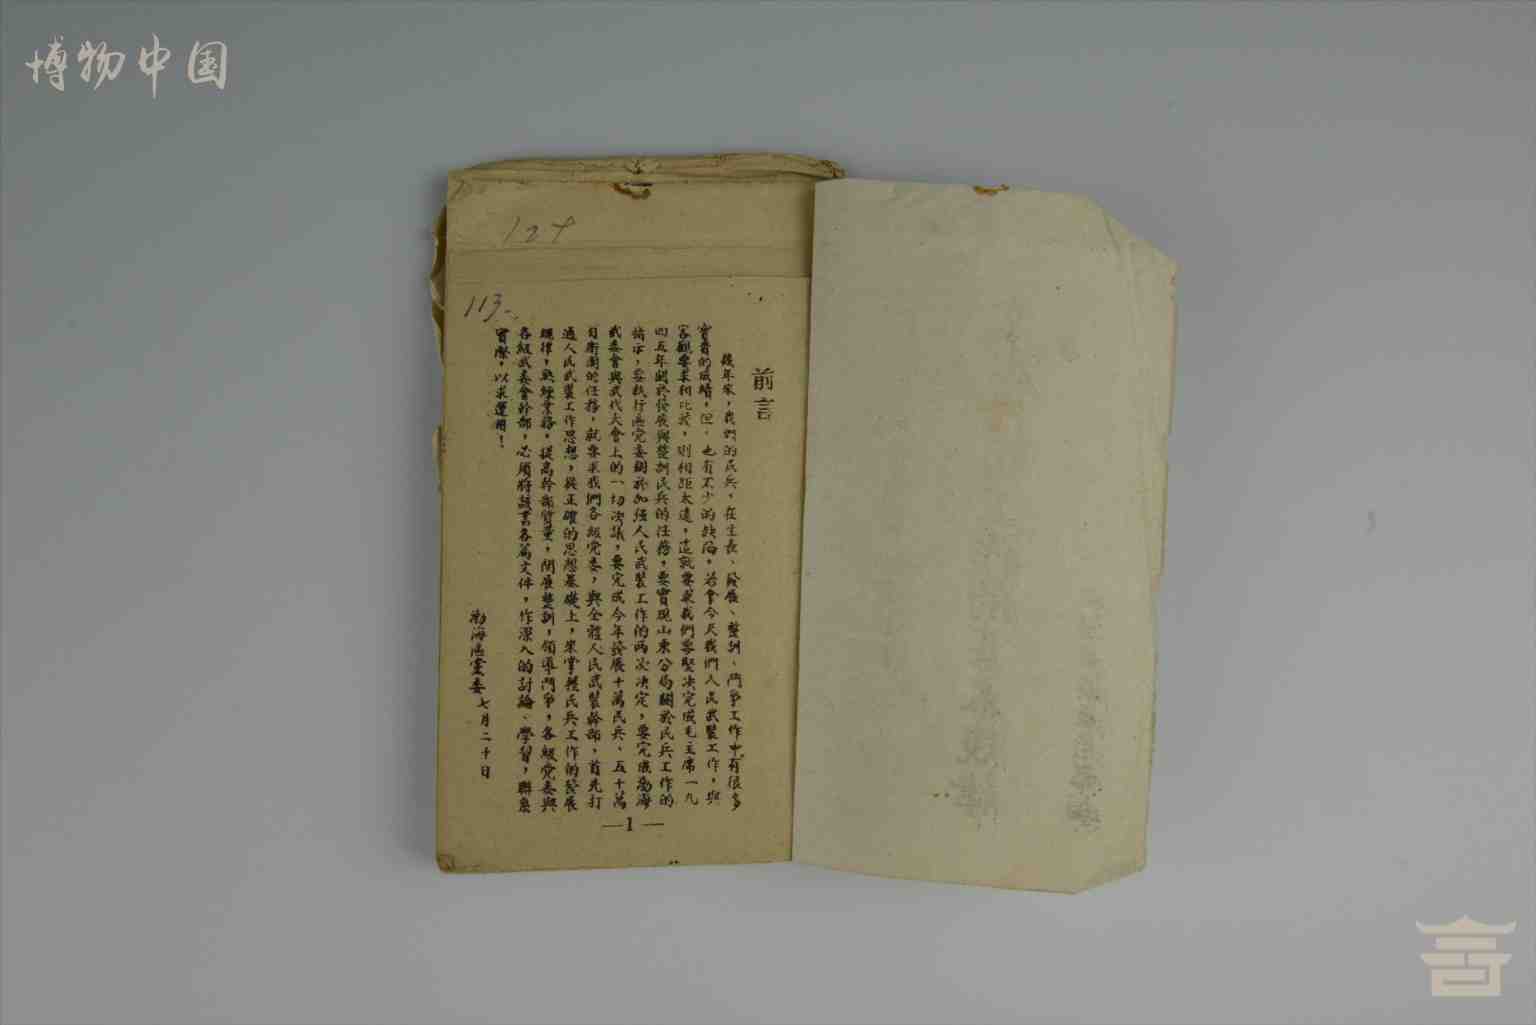 博物中国
124
113
前言
幾年來，我們的民兵，在生長、發展、整訓、鬥爭工作中，有很多
寶貴的成績，但，也有不少的缺陷，若拿今天我們人民武裝工作，與
客觀要求相比較，則相距太遠，這就要求我們要堅决完成毛主席一九
四五年關於發展與整訓民兵的任務，要實現山東分局關於民兵工作的
指示，要執行區党委關於加强人民武裝工作的兩次决定，要完成渤海
武委會與武代大會上的一切决議，要完成今年發展十萬民兵、五十萬
自衛團的任務，就要求我們各級党委，與全體人民武裝幹部，首先打
通人民武裝工作思想，從正確的思想基礎上，來掌握民兵工作的發展
規律，熟練業務，提高幹部質量，開展整訓，領導鬥爭，各級党委與
各級武委會幹部，必須將該書各篇文件，作深入的討論、學習，聯系
實際，以求運用！
渤海區黨委 七月二十日
—1—